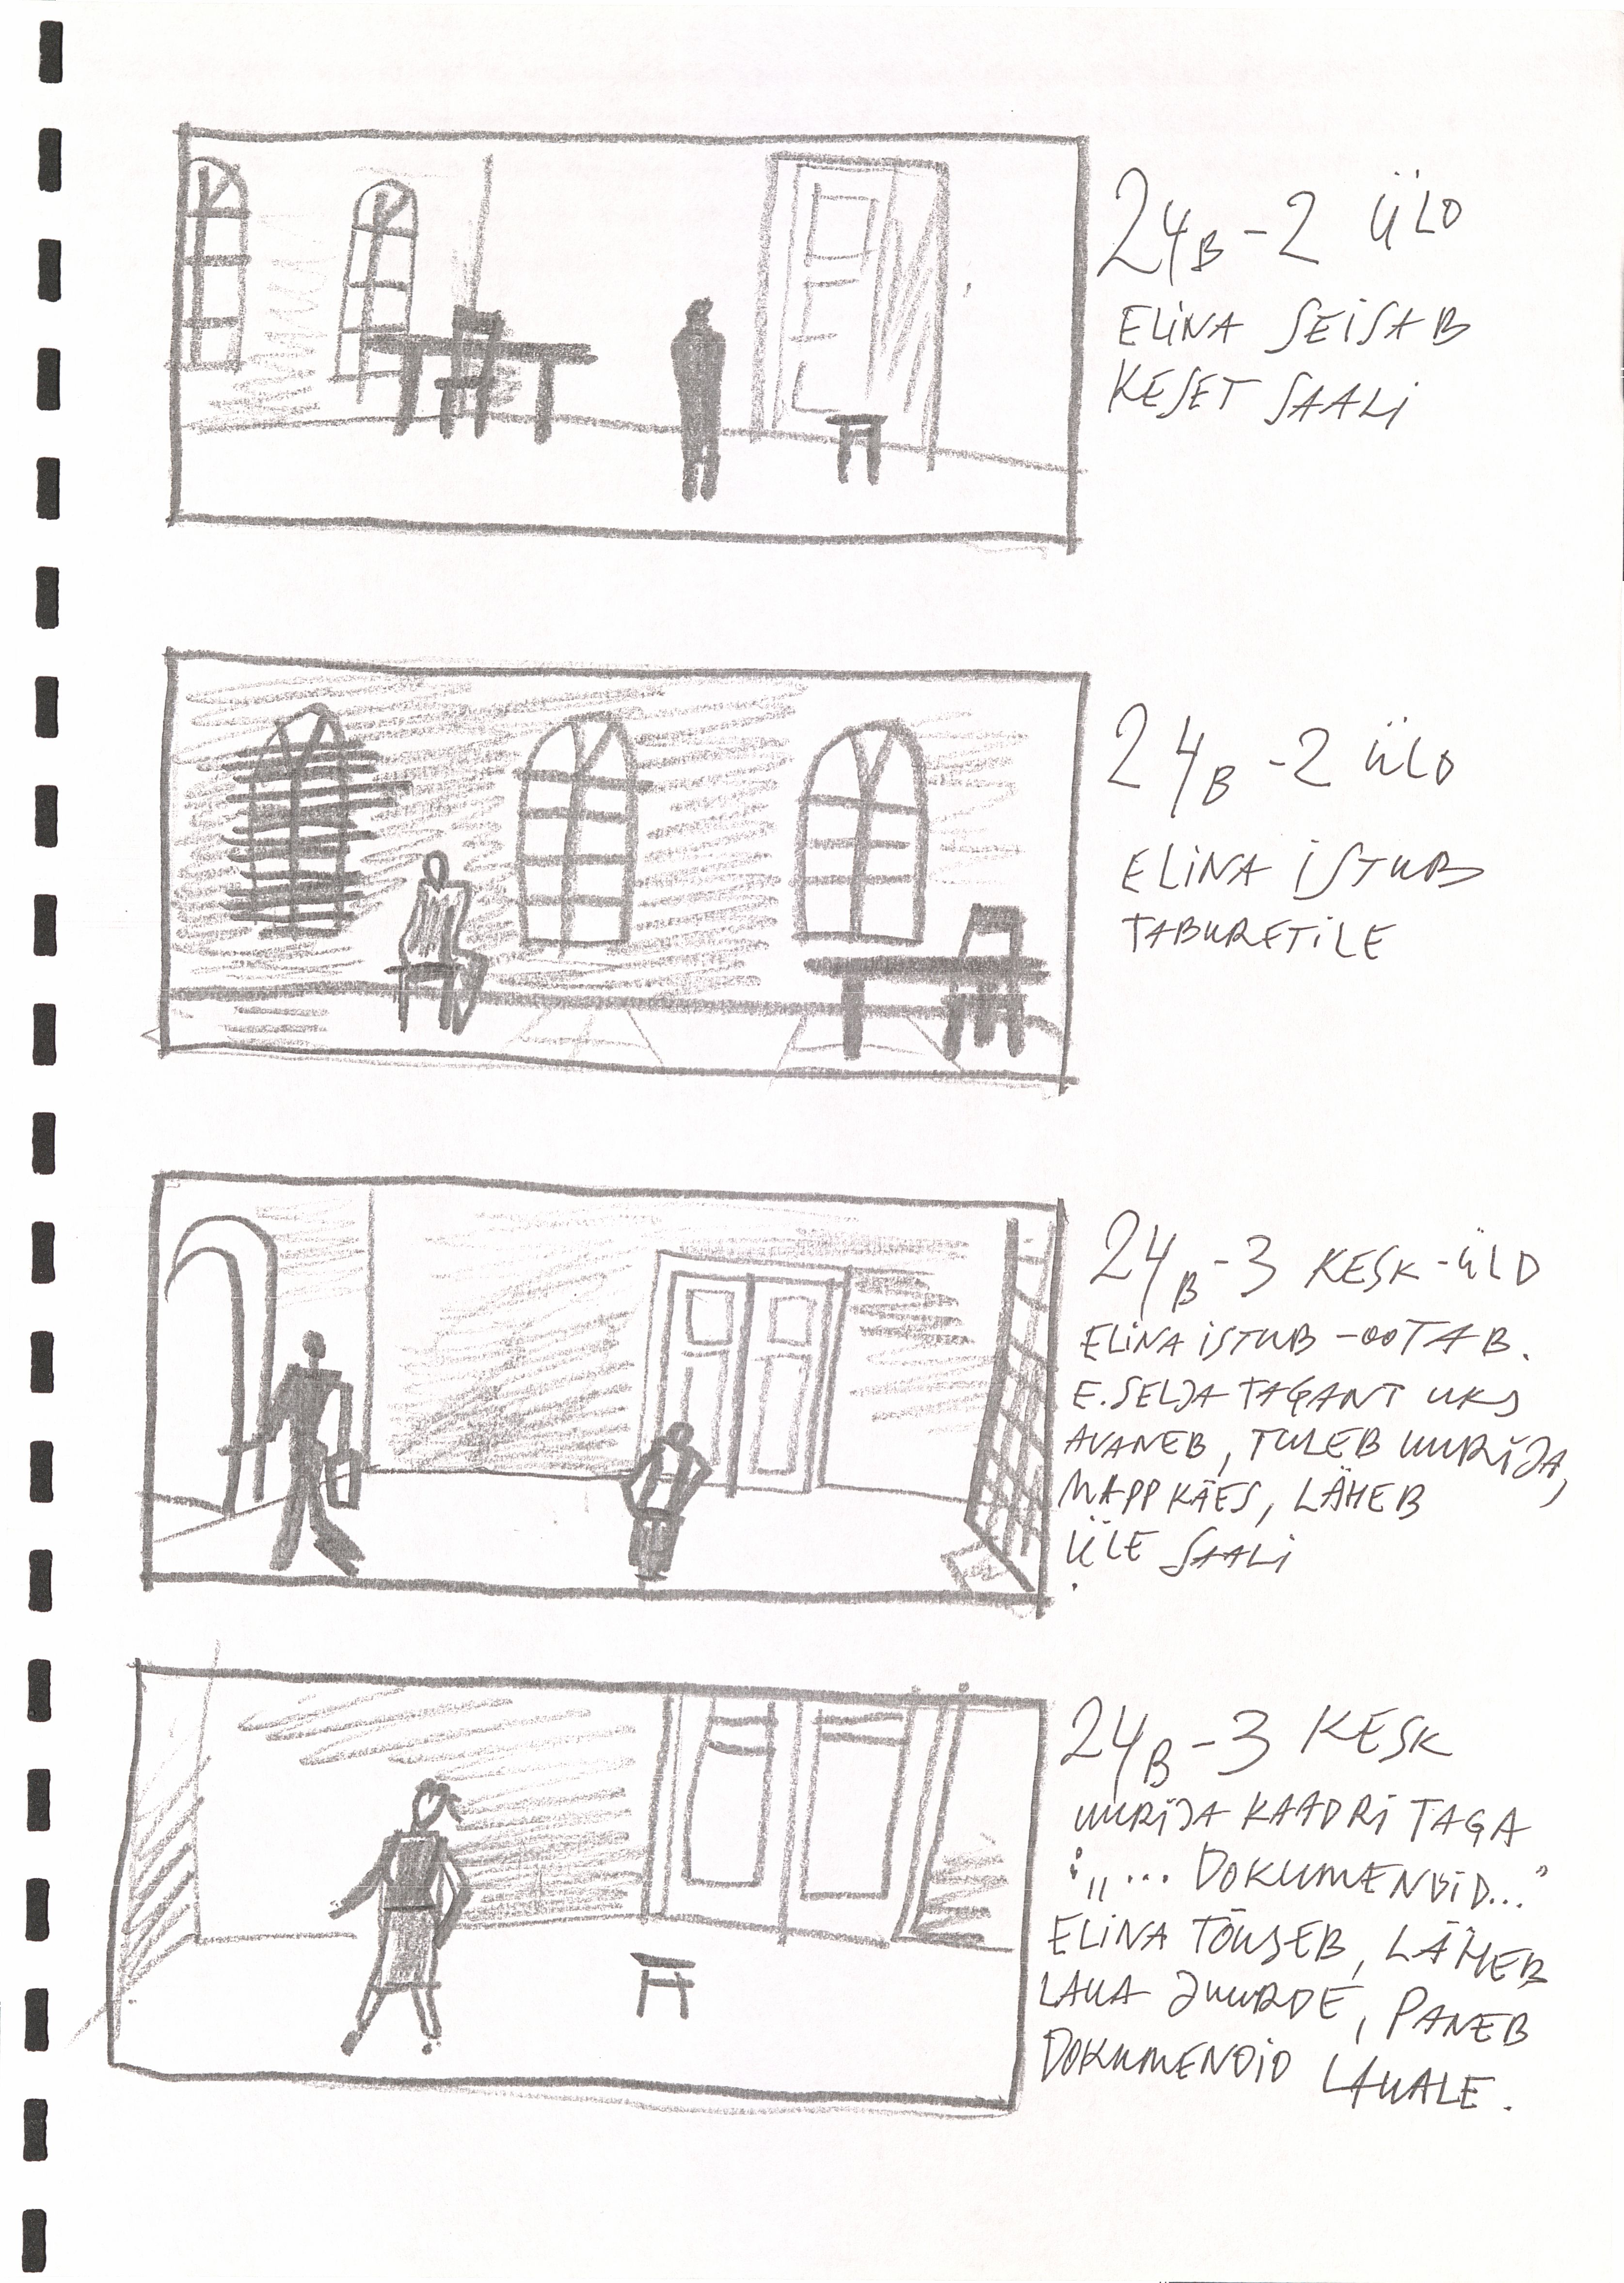 24B-2 ÜLD
ELINA SEISAB
KESET SAALI
24B-2 ÜLD
ELINA ISTUB
TABURETILE
24B-3 KESK-ÜLD
ELINA ISTUB -OOTAB.
E. SELJA TAGANT UKS
AVANEB, TULEB UURIJA,
MAPP KÄES, LÄHEB
ÜLE SAALI
24B-3 KESK
UURIJA KAADRI TAGA
: „... DOKUMENDID..."
ELINA TÕUSEB, LÄHEB
LAUA JUURDE, PANEB
DOKUMENDID LAUALE.